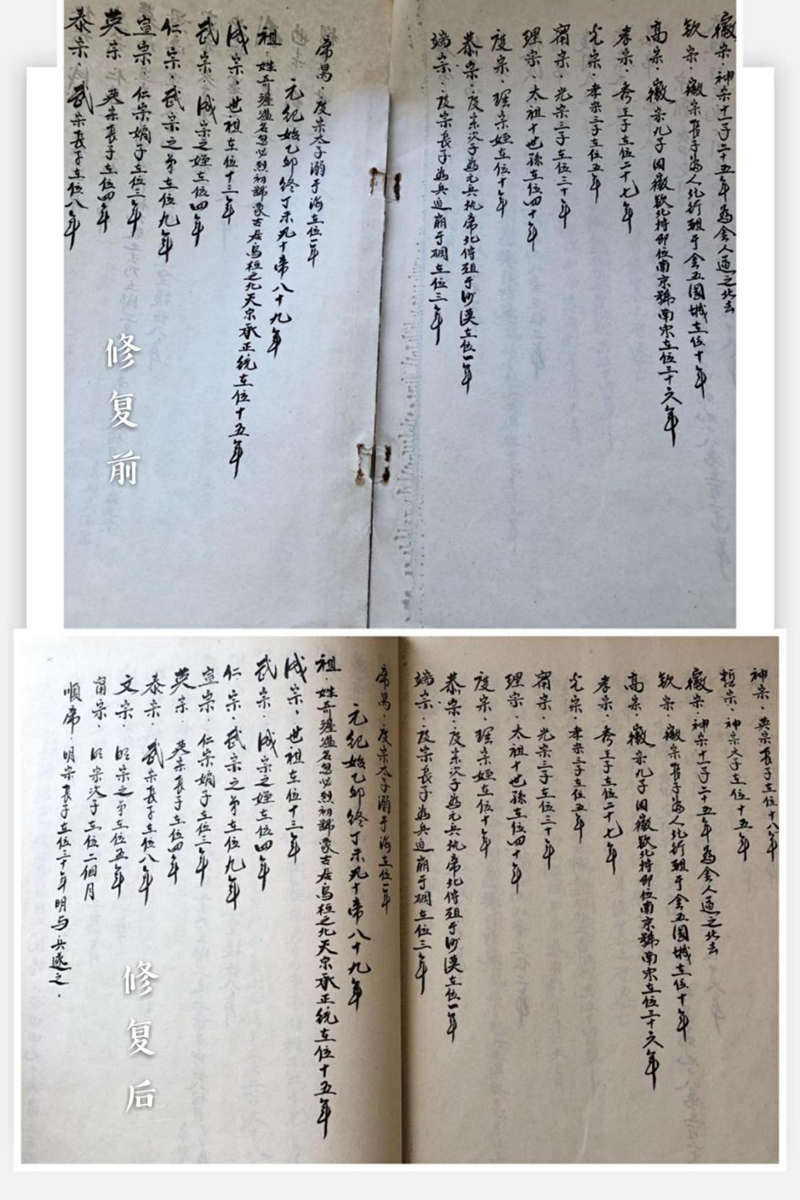 徽宗·神宗十一子二十五年為金人逼之北去
欽宗·徽宗長子為人北行殂于金五國城立位十年
高宗·徽宗九子因徽欽北狩即位南京號南宋立位三十六年
孝宗·秀王子立位二十七年
光宗·孝宗三子立位五年
甯宗·光宗三子立位三十年
理宗·太祖十世孫立位四十年
度宗·理宗姪立位十年
恭宗·度宗次子為元兵执帝北狩殂于沙漠立位一年
端宗·度宗長子為兵迫崩于硐立位三年
帝昺·度宗太子溺于海立位一年
元紀始乙卯終丁未凡十帝八十九年
祖·姓奇渥溫名忽必烈初號蒙古居烏桓之北天宗承正統立位十五年
成宗·世祖立位十三年
武宗·成宗之姪立位四年
仁宗·武宗之弟立位九年
宣宗·仁宗嫡子立位三年
英宗·仁英宗長子立位四年
泰宗·武宗長子立位八年
修复前
神宗·英宗長子立位十八年
哲宗·神宗太子立位十五年
徽宗·神宗十一子二十五年為金人逼之北去
欽宗·徽宗長子為人北行殂于金五國城立位十年
高宗·徽宗九子因徽欽北狩即位南京號南宋立位三十六年
孝宗·秀王子立位二十七年
光宗·孝宗三子立位五年
甯宗·光宗三子立位三十年
理宗·太祖十世孫立位四十年
度宗·理宗姪立位十年
恭宗·度宗次子為元兵执帝北狩殂于沙漠立位一年
端宗·度宗長子為兵迫崩于硐立位三年
帝昺·度宗太子溺于海立位一年
元紀始乙卯終丁未凡十帝八十九年
祖·姓奇渥溫名忽必烈初號蒙古居烏桓之北天宗承正統立位十五年
成宗·世祖立位十三年
武宗·成宗之姪立位四年
仁宗·武宗之弟立位九年
宣宗·仁宗嫡子立位三年
英宗 英宗長子立位四年
泰宗·武宗長子立位八年
文宗·明宗之弟立位五年
甯宗·明宗次子立位二個月
順帝·明宗長子立位三十年明与兵逐之·
修复后